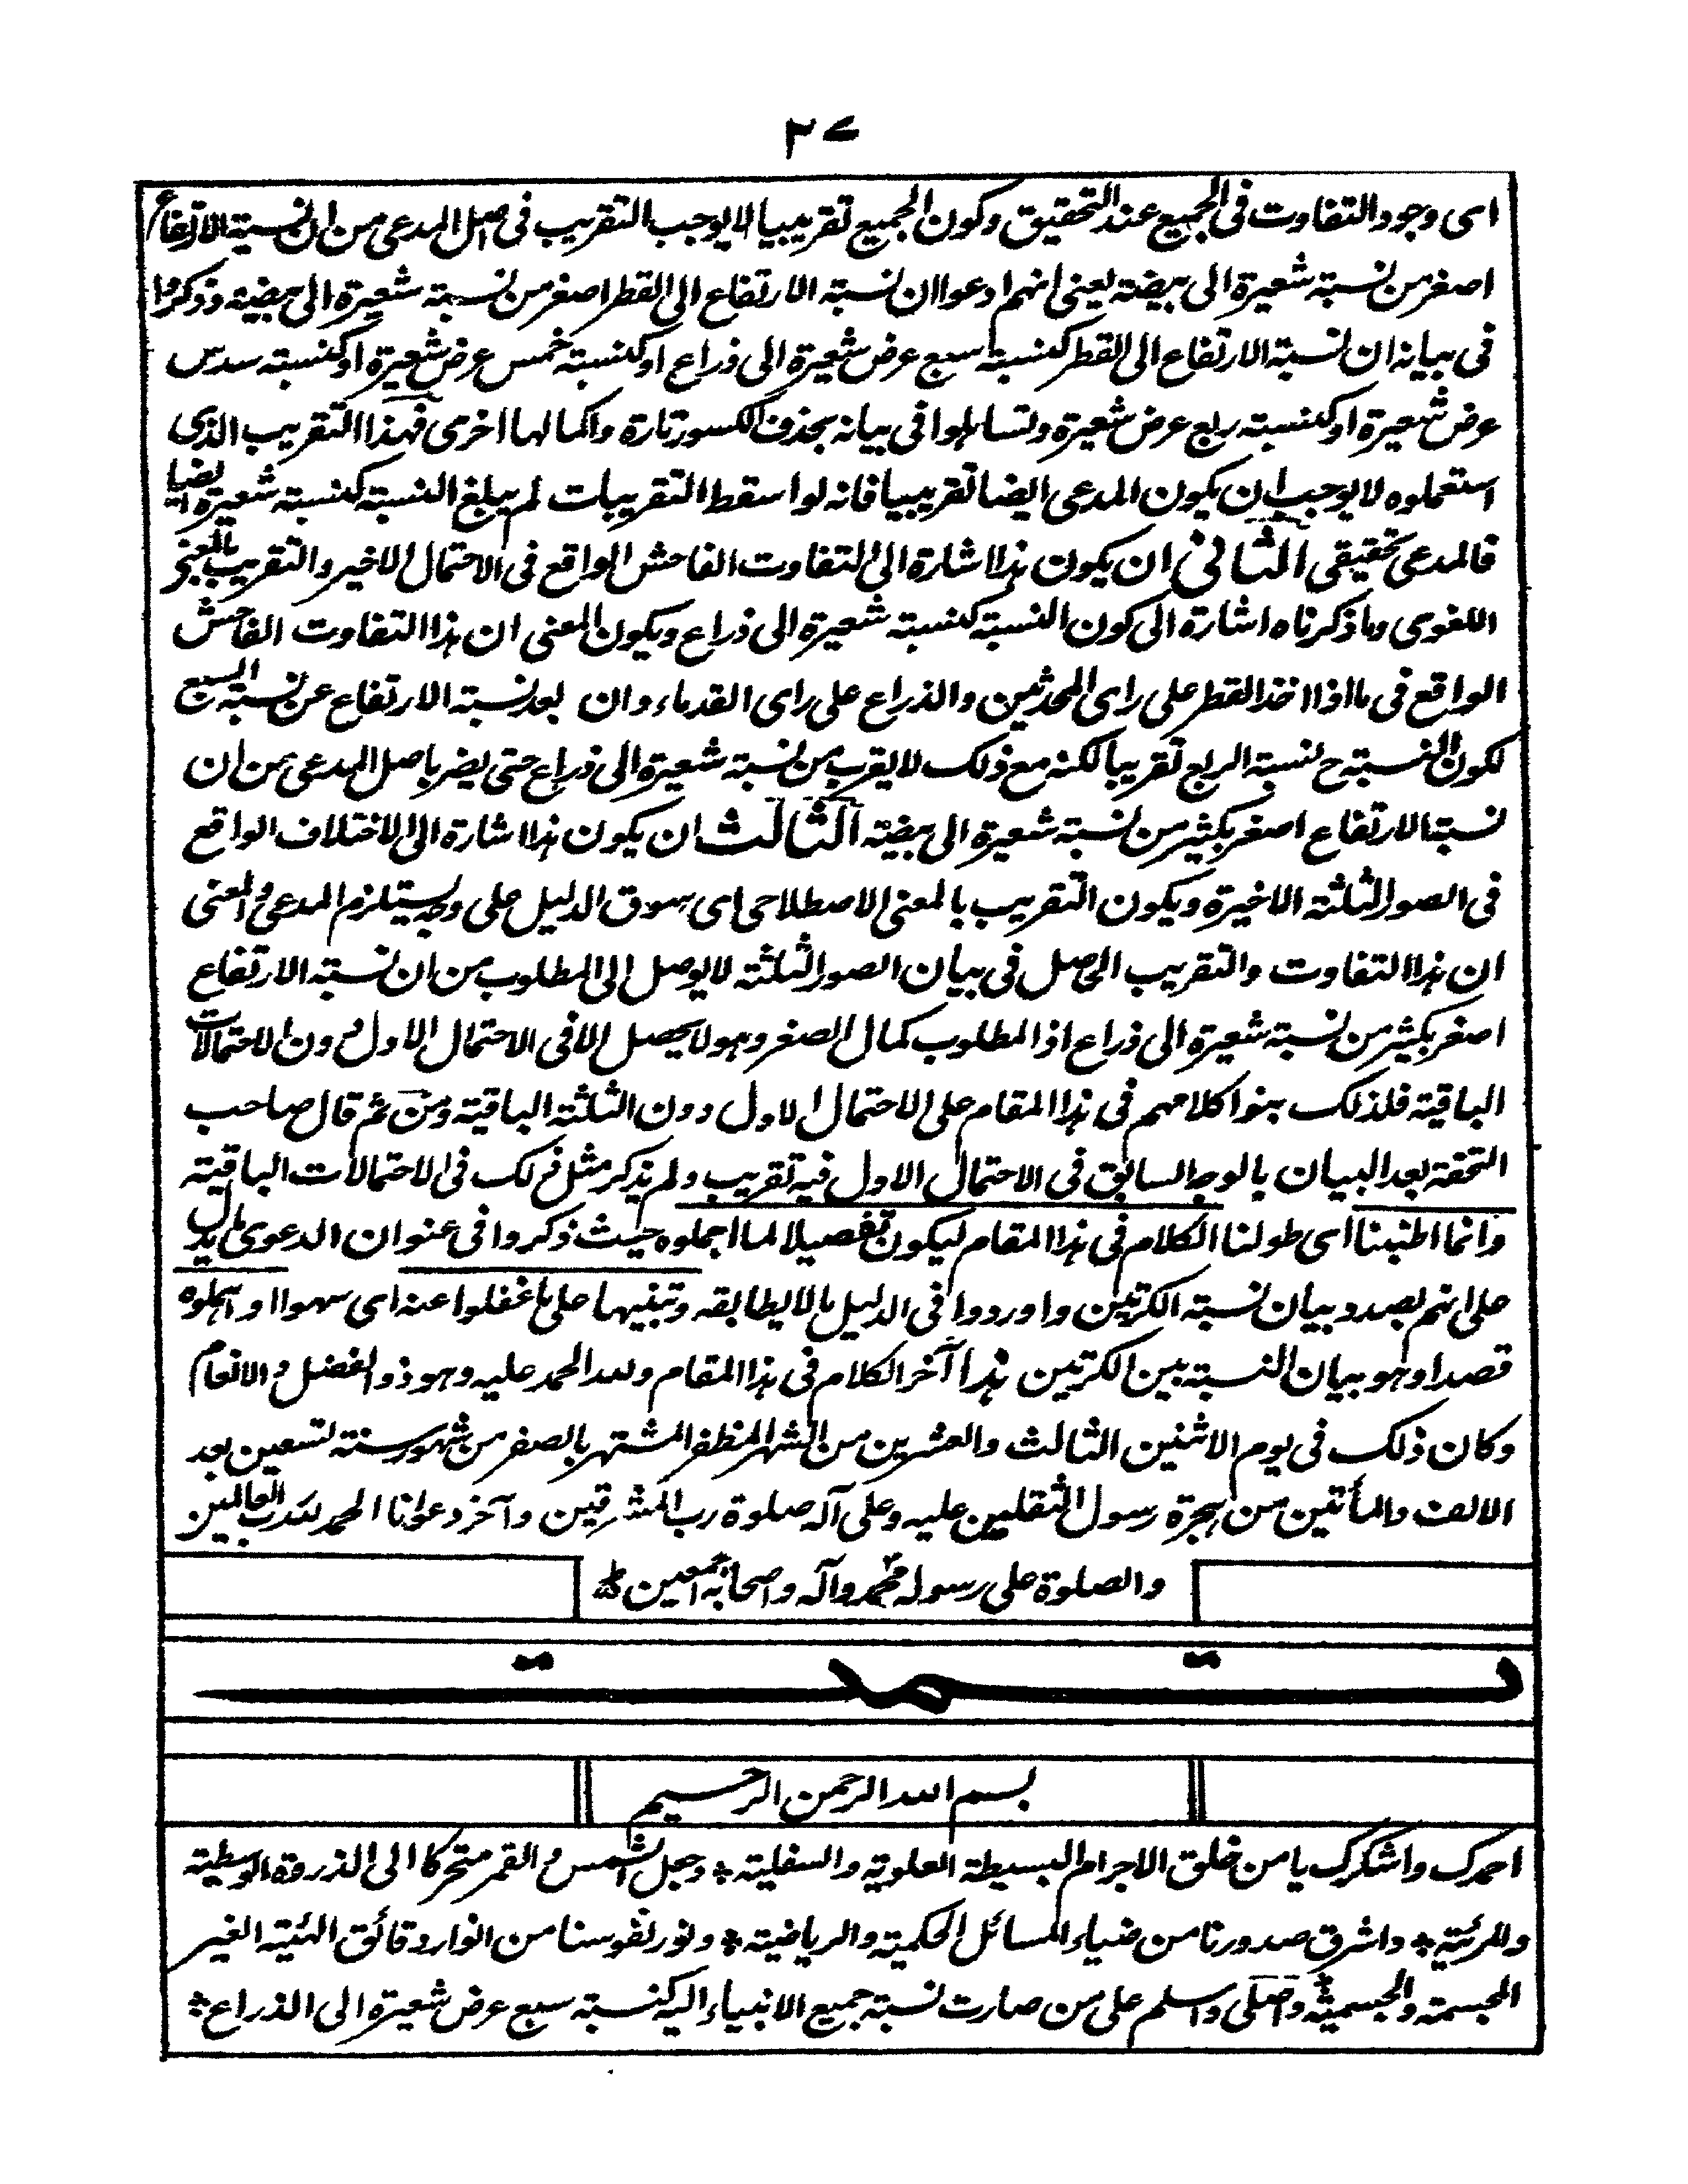 ٢٧
اى وجود التفاوت فى الجميع عند التحقيق وكون الجميع تقريبيا لا يوجب التقريب فى اصل المدعى من ان نسبة الارتفاع
اصغر من نسبة شعيرة الى بيضته يعنى انهم ادعوا ان نسبة الارتفاع الى القطر اصغر من نسبة شعيرة الى بيضته وذكروا
فى بيانه ان نسبة الارتفاع الى القطر كنسبة سبع عرض شعيرة الى ذراع او كنسبة خمس عرض شعيرة او كنسبة سدس
عرض شعيرة او كنسبة ربع عرض شعيرة وتساهلوا فى بيانه بحذف الكسور تارة واكمالها اخرى فهذا التقريب الذى
استعملوه لا يوجب ان يكون المدعى ايضا تقريبيا فانه لو اسقط التقريبات لم يبلغ النسبة كنسبة شعيرة ايضا
فالمدعى تحقيقى الثانى ان يكون هذا اشارة الى التفاوت الفاحش الواقع فى الاحتمال الاخير والتقريب بالمعنى
اللغوى وما ذكرناه اشارة الى كون النسبة كنسبة شعيرة الى ذراع ويكون المعنى ان هذا التفاوت الفاحش
الواقع فى ما اذا اخذ القطر على راى المحدثين والذراع على راى القدماء وان بعد نسبة الارتفاع عن نسبة السبع
لكون النسبة ح نسبة الربع تقريبا لكنه مع ذلك لا يقرب من نسبة شعيرة الى ذراع حتى يضر باصل المدعى من ان
نسبة الارتفاع اصغر بكثير من نسبة شعيرة الى بيضته الثالث ان يكون هذا اشارة الى الاختلاف الواقع
فى الصور الثلثة الاخيرة ويكون التقريب بالمعنى الاصطلاحى اى سوق الدليل على وجه يستلزم المدعى والمعنى
ان هذا التفاوت والتقريب الحاصل فى بيان الصور الثلثة لا يوصل الى المطلوب من ان نسبة الارتفاع
اصغر بكثير من نسبة شعيرة الى ذراع اذ المطلوب كمال الصغر وهو لا يحصل الا فى الاحتمال الاول دون الاحتمالات
الباقية فلذلك بنوا كلامهم فى هذا المقام على الاحتمال الاول دون الثلثة الباقية ومن ثم قال صاحب
التحفة بعد البيان بالوجه السابق فى الاحتمال الاول فيه تقريب ولم يذكر مثل ذلك فى الاحتمالات الباقية
وانما اطنبنا اى طولنا الكلام فى هذا المقام ليكون تفصيلا لما اجملوه حيث ذكروا فى عنوان الدعوى ما يدل
على انهم بصدد بيان نسبة الكرتين واوردوا فى الدليل ما لا يطابقه وتنبيها على ما غفلوا عنه اى سهوا او اهملوه
قصدا وهو بيان النسبة بين الكرتين هذا آخر الكلام فى هذا المقام ولله الحمد عليه وهو ذو الفضل والانعام
وكان ذلك فى يوم الاثنين الثالث والعشرين من الشهر المظفر المشتهر بالصفر من شهور سنة تسعين بعد
الالف والمأتين من هجرة رسول الثقلين عليه وعلى آله صلوة رب المشرقين وآخر دعوانا الحمد لله رب العالمين
والصلوة على رسوله محمد وآله واصحابه اجمعين
تمت
بسم الله الرحمن الرحيم
احمدك واشكرك يا من خلق الاجرام البسيطة العلوية والسفلية * وجعل الشمس والقمر متحركا الى الذروة الوسطية
والمرئية * واشرق صدورنا من ضياء المسائل الحكمية والرياضية * ونور نفوسنا من انوار دقائق الهئية الغير
المجسمة والمجسمية * واصلى واسلم على من صارت نسبة جميع الانبياء اليه كنسبة سبع عرض شعيرة الى الذراع *